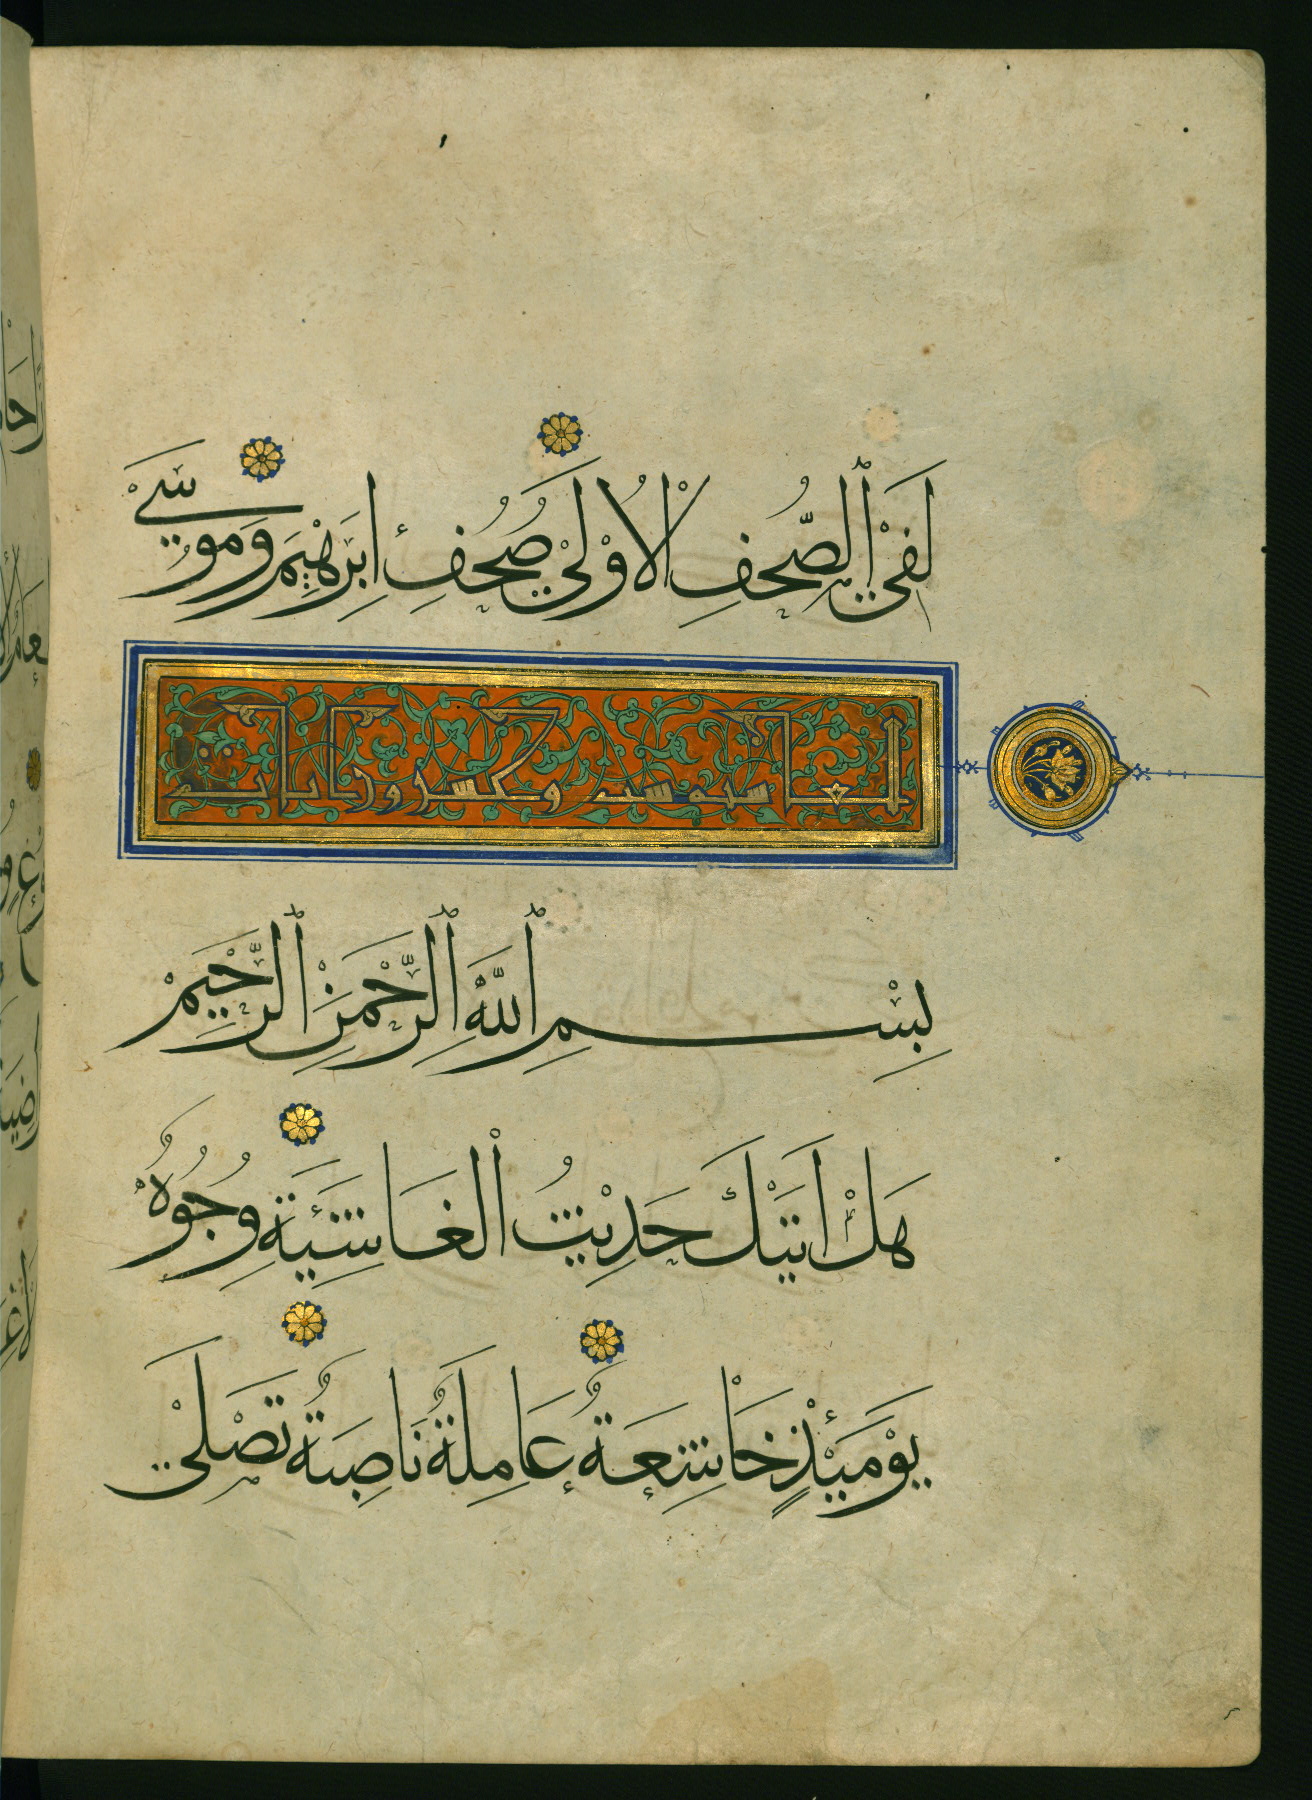 لَفِي ٱلصُّحُفِ ٱلْاُوْلٰي صُحُفِ اِبْرٰهِيمَ وَمُوسٰي
الغاشية وعشرون ايات
بِسْمِ ٱللَّهِ ٱلرَّحْمٰنِ ٱلرَّحِيمِ
هَلْ اَتٰيكَ حَدِيْثُ الْغَاشِيَةِ وُجُوْهٌ
يَوْمَئِذٍ خَاشِعَةٌ عَامِلَةٌ نَاصِبَةٌ تَصْلٰي